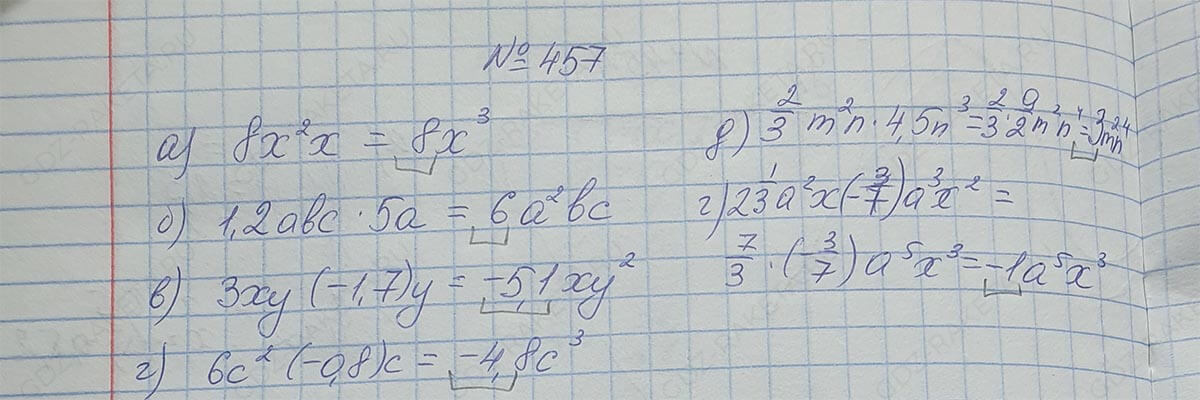 № 457
а) 8x²x = 8x³
б) 1,2abc · 5a = 6a²bc
в) 3xy (-1,7)y = -5,1xy²
г) 6c² (-0,8)c = -4,8c³
д) 2/3 m²n · 4,5n³ = 2/3 · 9/2 m²n⁴ = 3m²n⁴
г) 2 1/3 a²x (-3/7) a³x² =
7/3 · (-3/7) a⁵x³ = -1a⁵x³